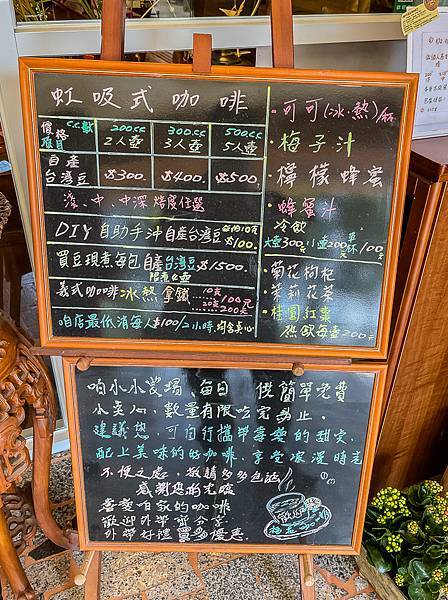 虹吸式咖啡
價格 c.c.數 200cc 300cc 500cc
項目 2人壺 3人壺 5人壺
自產
台灣豆 $300. $400. $500.
淺、中、中深 焙度任選
DIY自助手沖自產台灣豆 $100.
買豆現煮每包自產台灣豆$1500.
義式咖啡冰熱拿鐵 100元 200元
咱店最低消每人$100/2小時 均含點心
•可可(冰、熱)/杯
•梅子汁
•檸檬蜂蜜
•蜂蜜汁
冷飲
大壺300元 小壺200元 單杯100元
•菊花枸杞
•茉莉花茶
•桂圓紅棗
熱飲每壺200元
咱小小農場、每日 供簡單免費
小點心、數量有限吃完為止。
建議您,可自行攜帶喜愛的甜點
配上美味的好咖啡,享受浪漫時光
不便之處,敬請多多包涵
感謝您的光臨
喜愛咱家的咖啡
歡迎外帶分享
外帶好禮買多優惠
歡迎